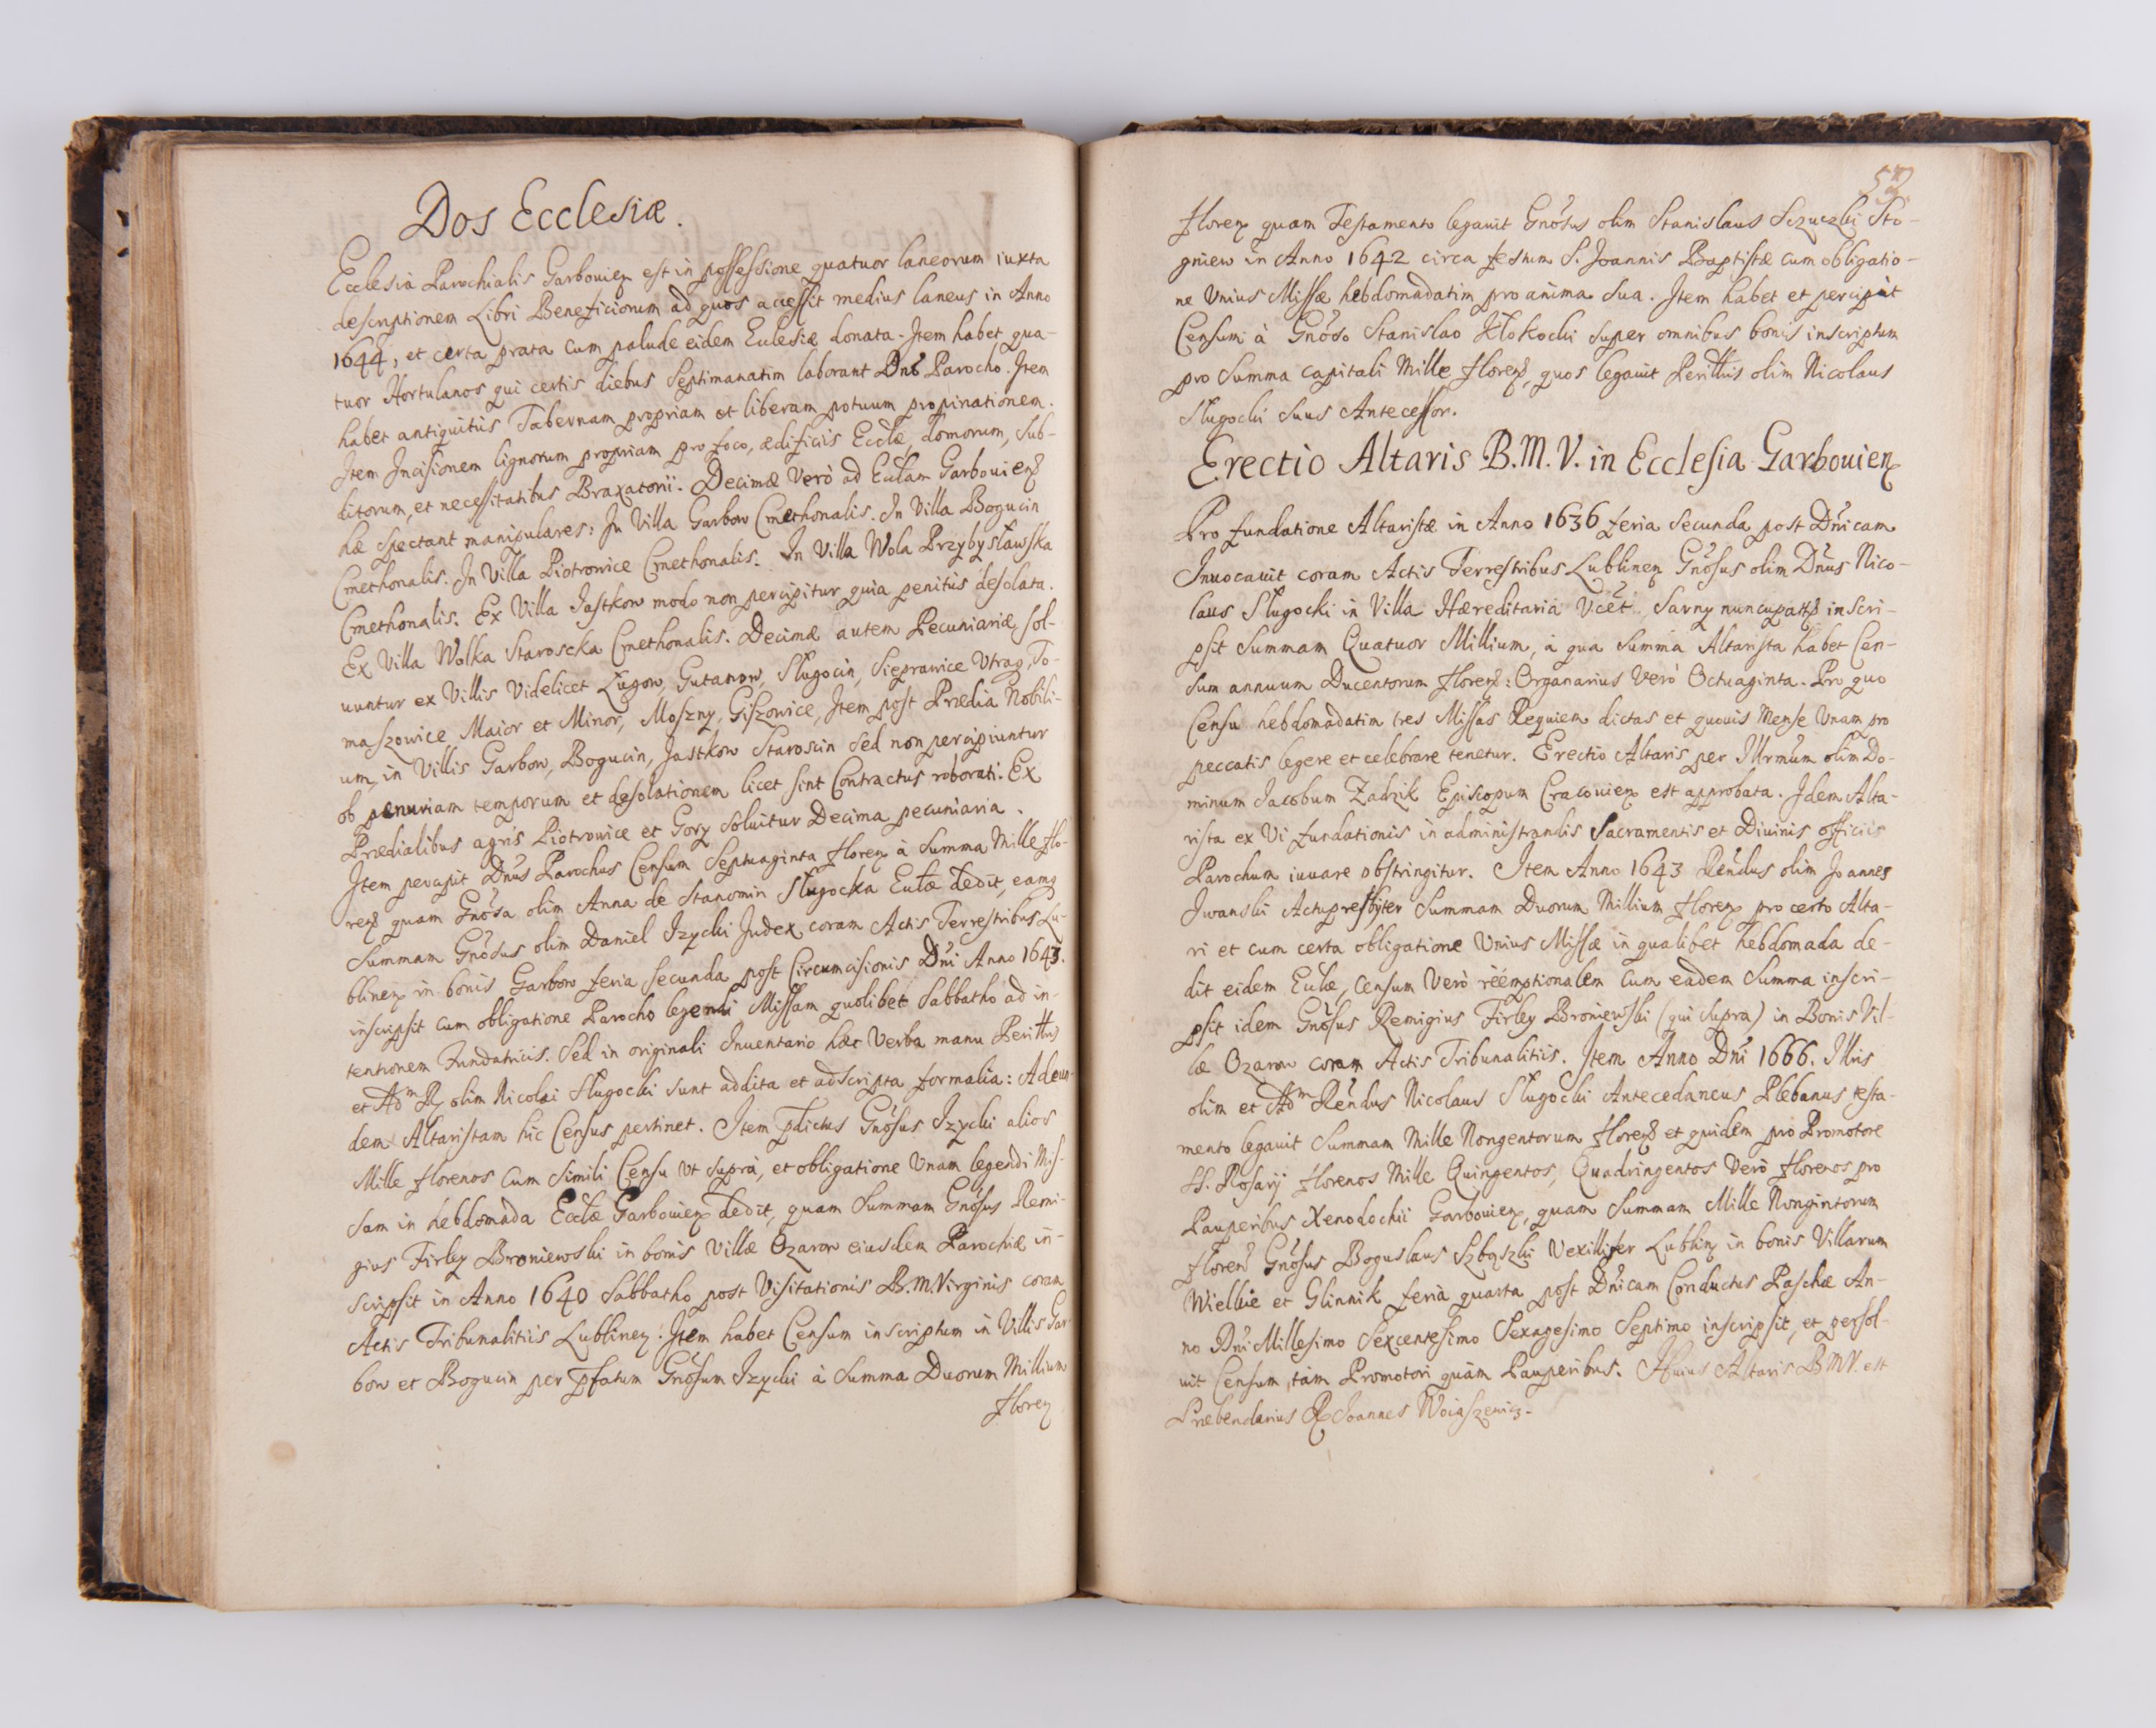 Dos Ecclesiæ.
Ecclesia Parochialis Garbouien est in possessione quatuor laneorum iuxta
descriptionem Libri Beneficiorum ad quos accessit medius laneus in Anno
1644, et certa prata cum palude eidem Eulesiæ donata. Item habet qua-
tuor Hortulanos qui certis diebus Septimanatim laborant Dno Parocho. Item
habet antiquitùs Tabernam propriam et liberam potuum propinationem.
Item Incisionem lignorum propriam pro foco, ædificiis Ecclæ, domorum, sub-
ditorum, et necessitatibus Braxatorii. Decimæ verò ad Eccłam Garbouien
hæ spectant manipulares: In Villa Garbow Cmethonalis. In Villa Bogucin
Cmethonalis. In Villa Piotrowice Cmethonalis. In Villa Wola Przybysławska
Cmethonalis. Ex Villa Jastkow modo non percipitur quia penitùs desolata.
Ex Villa Wolka Staroscka Cmethonalis. Decimæ autem Pecuniariæ sol-
uuntur ex Villis Videlicet Ługow, Gutanow, Sługocin, Sieprawice Utraq, To-
maszowice Maior et Minor, Moszny, Giszowice, Item post Prædia Nobili-
um, in Villis Garbow, Bogucin, Jastkow Staroscin sed non percipiuntur
ob penuriam temporum et desolationem licet sint Contractus roborati. Ex
Prædialibus agris Piotrowice et Gory soluitur Decima pecuniaria.
Item percipit Dnus Parochus Censum Septuaginta floren à Summa Mille flo-
ren quam Gnosa olim Anna de Stanomin Sługocka Eccłæ dedit, eamq
Summam Gnosus olim Daniel Izycki Judex coram Actis Terrestribus Lu-
blinen in bonis Garbow feria secunda post Circumcisionis Dni Anno 1643.
inscripsit cum obligatione Parocho legendi Missam quolibet Sabbatho ad in-
tentionem Fundatricis. Sed in originali Inuentario hæc Verba manu Perittris
et Adm R olim Nicolai Sługocki sunt addita et adscripta formalia: Ad eun-
dem Altaristam hic Census pertinet. Item pdictus Gnosus Izycki alios
Mille florenos cum simili Censu ut suprà, et obligatione unam legendi Mis-
sam in hebdomada Eccłæ Garbouien dedit, quam summam Gnosus Remi-
gius Firley Broniewski in bonis Villæ Ozarow eiusdem Parochiæ in-
scripsit in Anno 1640 Sabbatho post Visitationis B.M.Virginis coram
Actis Tribunalitiis Lublinen: Item habet Censum inscriptum in Villis Gar-
bow et Bogucin per pfatum Gnosum Izycki à Summa Duorum Millium
floren
floren quam Testamento legauit Gnosus olim Stanislaus Szuczki Sto-
gniew in Anno 1642 circa festum S. Joannis Baptistæ cum obligatio-
ne Vnius Missæ hebdomadatim pro anima sua. Item habet et percipit
Censum à Gnoso Stanislao Kłokocki super omnibus bonis inscriptum
pro summa capitali Mille floren, quos legauit Perittris olim Nicolaus
Sługocki suus Antecessor.
Erectio Altaris B.M.V. in Ecclesia Garbouien
Pro fundatione Altaristæ in Anno 1636 feria secunda post Dnicam
Inuocauit coram Actis Terrestribus Lublinen Gnosus olim Dnus Nico-
laus Sługocki in Villa Hæreditaria Vcet Sarny nuncupatt inscri-
psit Summam Quatuor Millium, à qua summa Altarista habet Cen-
sum annuum Ducentorum floren: Organarius verò Octuaginta. Pro quo
Censu hebdomadatim tres Missas Requiem dictas et quouis Mense Vnam pro
peccatis legere et celebrare tenetur. Erectio Altaris per Illrmum olim Do-
minum Jacobum Zadzik Episcopum Cracouien est approbata. Idem Alta-
rista ex Vi fundationis in administrandis Sacramentis et Diuinis officiis
Parochum iuuare obstringitur. Item Anno 1643 Rendus olim Joannes
Iwanski Actupresbyter Summam Duorum Millium floren pro certo Alta-
ri et cum certa obligatione Vnius Missæ in qualibet hebdomada de-
dit eidem Eccłæ, Censum verò rèémptionalem cum eadem summa inscri-
psit idem Gnosus Remigius Firley Broniewski (qui supra) in Bonis Vil-
læ Ozarow coram Actis Tribunalitiis. Item Anno Dni 1666. Illris
olim et Adm Rendus Nicolaus Sługocki Antecedaneus Plebanus testa-
mento legauit summam Mille Nongentorum floren et quidem pro Promotore
SS. Rosarij florenos Mille Quingentos, Quadringentos verò florenos pro
Pauperibus Xenodochii Garbouien, quam summam Mille Nongintorum
floren Gnosus Boguslaus Sząszki Vexillifer Lublin in bonis Villarum
Wielkie et Glinnik feria quarta post Dnicam Conductus Paschæ An-
no Dni Millesimo Sexcentesimo Sexagesimo Septimo inscripsit, et persol-
uit Censum, tàm Promotori quàm Pauperibus. Huius Altaris BMV. est
Præbendarius R Joannes Woiaszewicz.